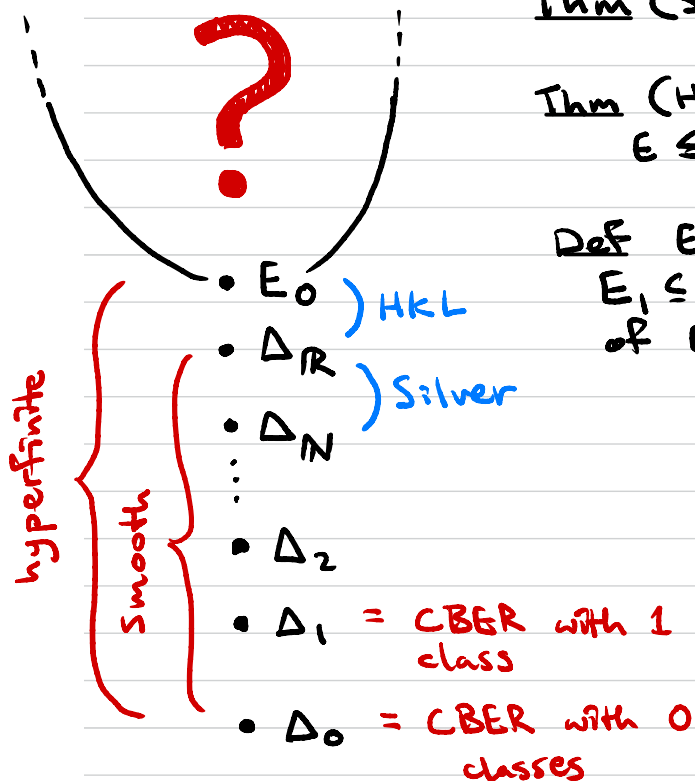 Thm (
?
Thm (H
E ≤
Def E
E₁ ⊆
of
• E₀
) HKL
• Δ_ℝ
) Silver
• Δ_ℕ
⋮
• Δ₂
• Δ₁ = CBER with 1
class
• Δ₀ = CBER with 0
classes
hyperfinite
smooth